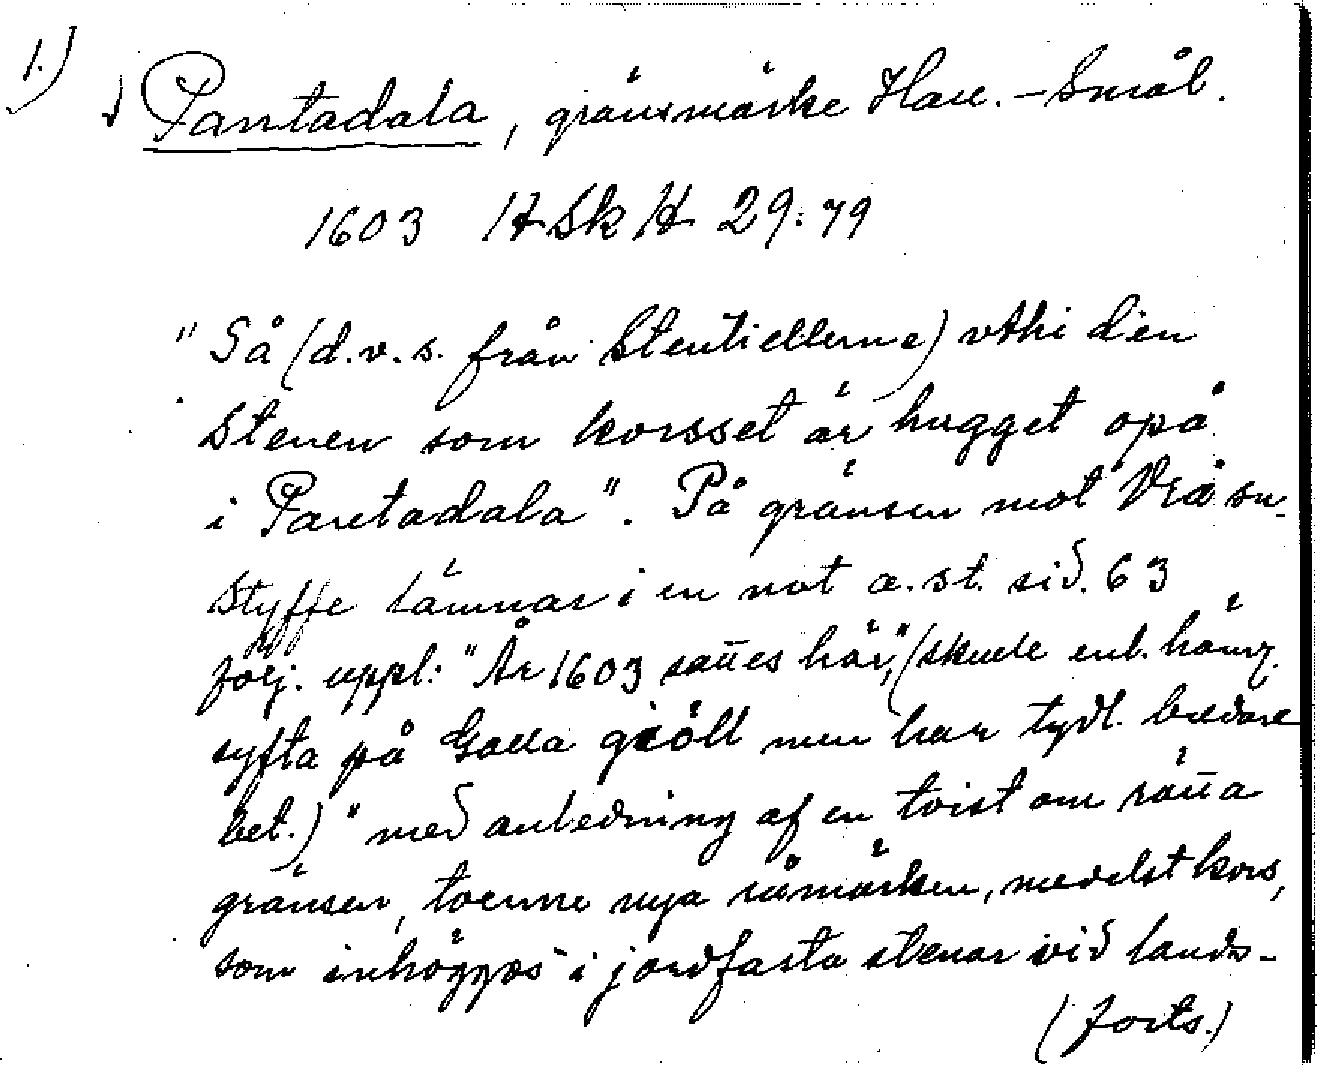 1.)
Pantadala, gränsmärke Hall. - Smål.
1603 HSkH 29:79
"Så (d.v.s. från Stentiellerne) vthi den
Stenen som korsset är hugget opå
i Pantadala". På gränsen mot Vrå sn.
Styffe lämnar i en not a. st. sid. 63
följ. uppl: "År 1603 sattes här," (skulle enl. hänv.
syfta på Galla giöll men har tydl. vidare
bet.) "med anledning af en tvist om rätta
gränsen, tvenne nya råmärken, medelst kors,
som inhöggos i jordfasta stenar vid lands-
(forts.)